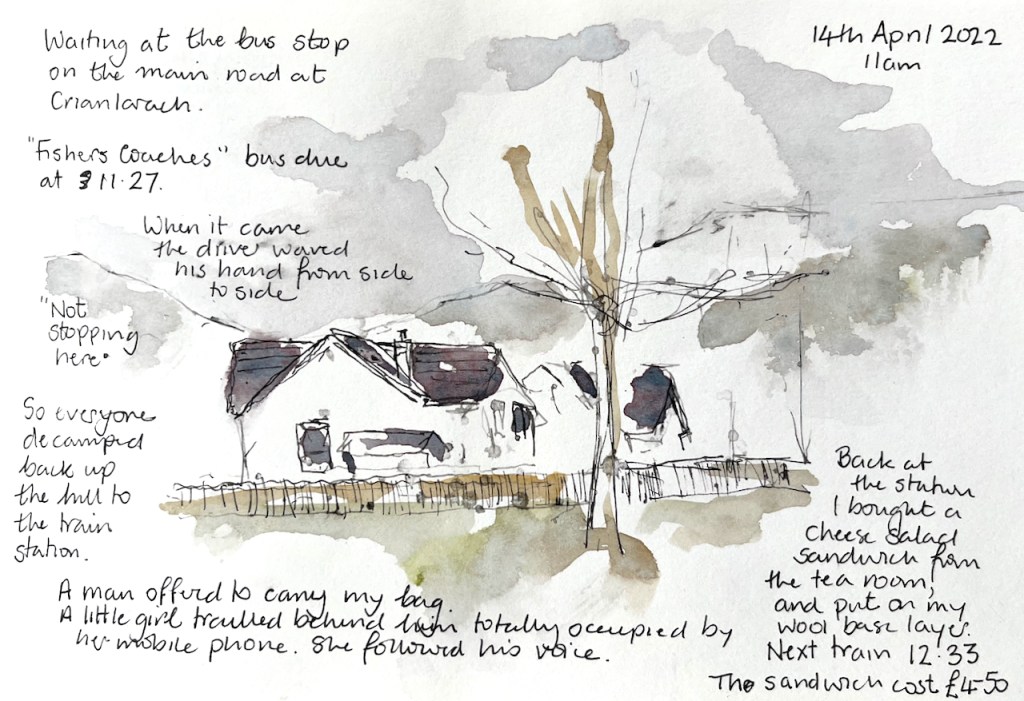 Waiting at the bus stop
on the main road at
Crianlarach.
14th April 2022
11am
"Fishers Coaches" bus due
at 11.27.
When it came
the driver waved
his hand from side
to side
"Not
stopping
here"
So everyone
decamped
back up
the hill to
the train
station.
A man offerd to carry my bag.
A little girl trailed behind him totally occupied by
her mobile phone. She followed his voice.
Back at
the station
I bought a
cheese salad
sandwich from
the tea room,
and put on my
wool base layer.
Next train 12:33
The sandwich cost £4-50